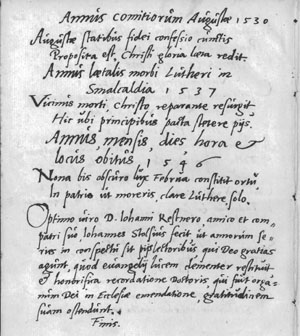 Annus comitiorum Augustæ 1530
Augustæ statibus fidei confessio cunctis
Proposita est, Christi gloria læta redit.
Annus lætalis morbi Lutheri in
Smalcaldia 1537
Vicinus morti, Christo reparante resurgit
Hic ubi principibus pacta stetere pijs.
Annus mensis, dies hora et
locus obitus, 1546
Nona bis obscuro lux Februa constitit ortu
In patrio ut moreris, clare Luthere, solo.
Optimo viro D. Iohanni amico et com-
patri suo, Iohannes Stolsius fecit ut annorum se-
ries in conspectu sit lectoribus qui Deo gratias
agunt, quod euangelij lucem clementer restituit
et honorifica recordatione Doctoris, qui fuit orga-
num Dei in Ecclesiæ emendatione, gratitudinem
suam ostendunt.
Finis.